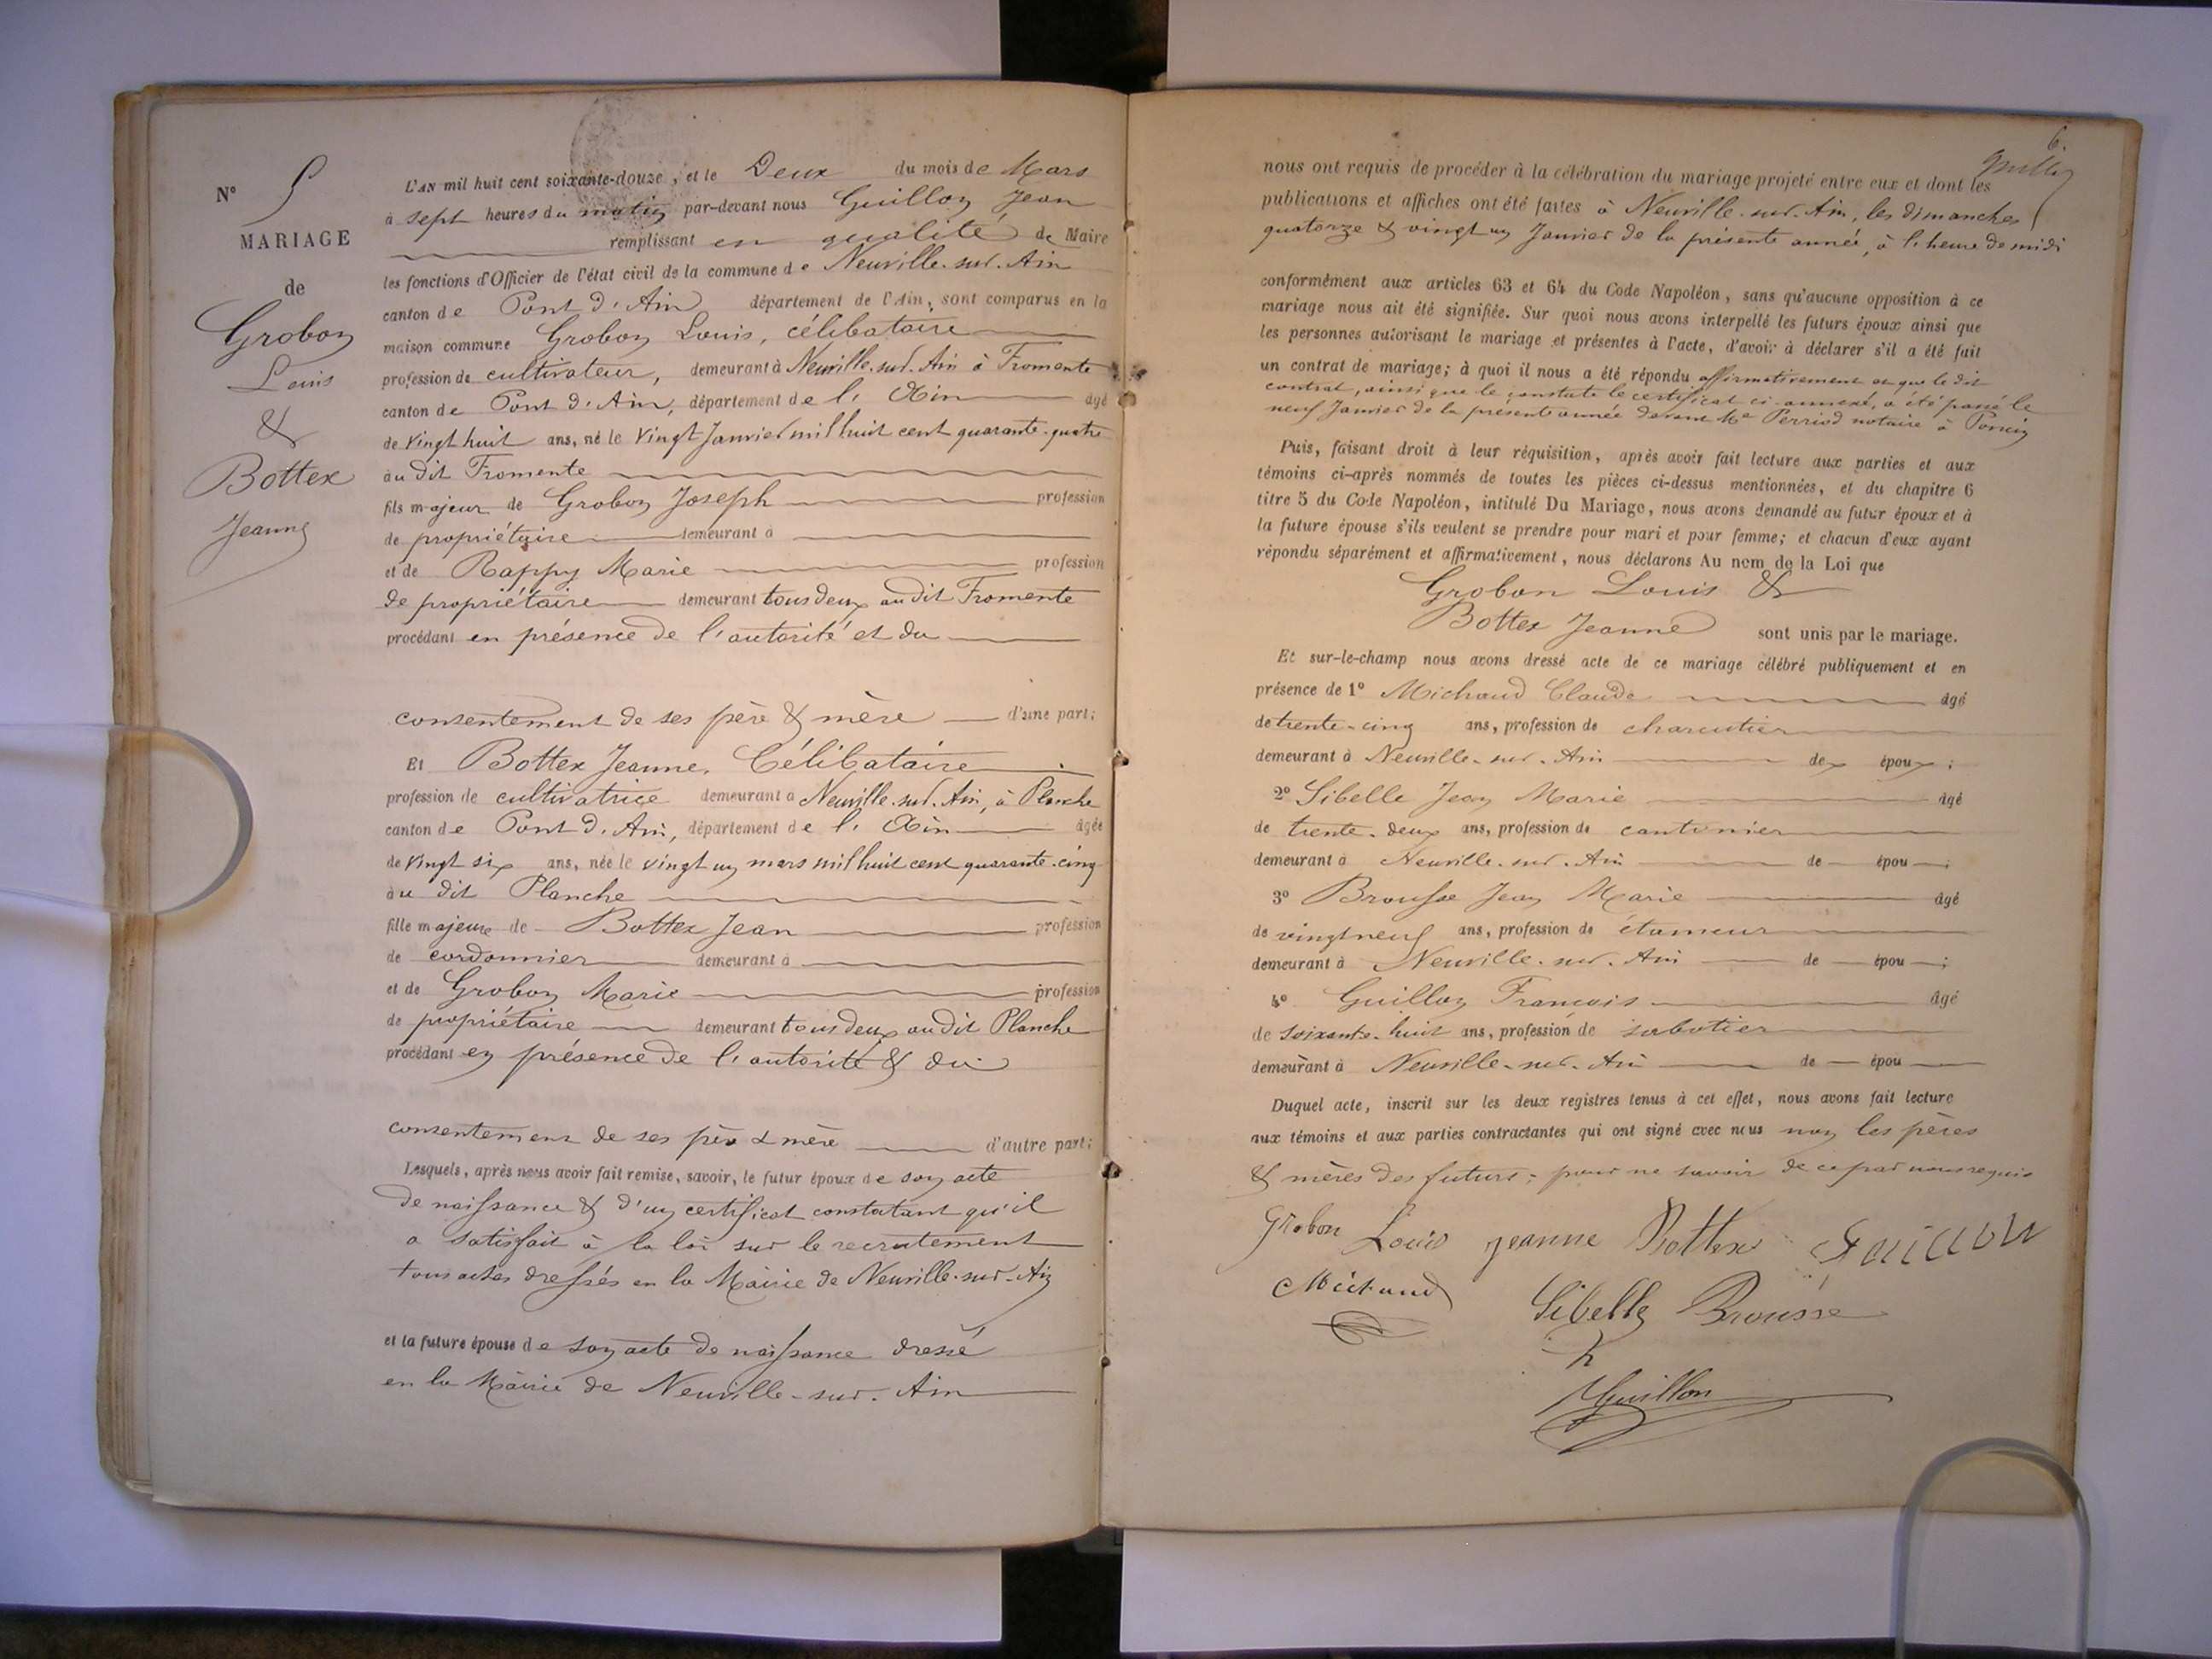 N° 5
MARIAGE
de
Grobon
Louis
&
Bottex
Jeanne
L'AN mil huit cent soixante-douze, et le Deux du mois de Mars
à sept heures du matin par-devant nous Guillon Jean
remplissant en qualité de Maire
les fonctions d'Officier de l'état civil de la commune de Neuville-sur-Ain
canton de Pont d'Ain département de l'Ain, sont comparus en la
maison commune Grobon Louis, célibataire
profession de cultivateur, demeurant à Neuville-sur-Ain à Fromente
canton de Pont d'Ain, département de l'Ain âgé
de vingt huit ans, né le vingt Janvier mil huit cent quarante-quatre
au dit Fromente
fils majeur de Grobon Joseph profession
de propriétaire demeurant à
et de Rappy Marie profession
de propriétaire demeurant tous deux au dit Fromente
procédant en présence de l'autorité et du
consentement de ses père & mère d'une part;
Et Bottex Jeanne, Célibataire
profession de cultivatrice demeurant à Neuville-sur-Ain, à Planche
canton de Pont d'Ain, département de l'Ain âgée
de vingt six ans, née le vingt un mars mil huit cent quarante-cinq
au dit Planche
fille majeure de Bottex Jean profession
de cordonnier demeurant à
et de Grobon Marie profession
de propriétaire demeurant tous deux au dit Planche
procédant en présence de l'autorité & du
consentement de ses père & mère d'autre part;
Lesquels, après nous avoir fait remise, savoir, le futur époux de son acte
de naissance & d'un certificat constatant qu'il
a satisfait à la loi sur le recrutement
tous actes dressés en la Mairie de Neuville-sur-Ain
et la future épouse de son acte de naissance dressé
en la Mairie de Neuville-sur-Ain
6.
Guillon
nous ont requis de procéder à la célébration du mariage projeté entre eux et dont les
publications et affiches ont été faites à Neuville-sur-Ain, les dimanches
quatorze & vingt un Janvier de la présente année, à l'heure de midi
conformément aux articles 63 et 64 du Code Napoléon, sans qu'aucune opposition à ce
mariage nous ait été signifiée. Sur quoi nous avons interpellé les futurs époux ainsi que
les personnes autorisant le mariage et présentes à l'acte, d'avoir à déclarer s'il a été fait
un contrat de mariage; à quoi il nous a été répondu affirmativement et que le dit
contrat, ainsi que le constate le certificat ci-annexé, a été passé le
neuf Janvier de la présente année devant Me Perriod notaire à Poncin
Puis, faisant droit à leur réquisition, après avoir fait lecture aux parties et aux
témoins ci-après nommés de toutes les pièces ci-dessus mentionnées, et du chapitre 6
titre 5 du Code Napoléon, intitulé Du Mariage, nous avons demandé au futur époux et à
la future épouse s'ils veulent se prendre pour mari et pour femme; et chacun d'eux ayant
répondu séparément et affirmativement, nous déclarons Au nom de la Loi que
Grobon Louis &
Bottex Jeanne sont unis par le mariage.
Et sur-le-champ nous avons dressé acte de ce mariage célébré publiquement et en
présence de 1° Michaud Claude âgé
de trente-cinq ans, profession de charcutier
demeurant à Neuville-sur-Ain de époux;
2° Sibelle Jean Marie âgé
de trente-deux ans, profession de cantonnier
demeurant à Neuville-sur-Ain de épou;
3° Brousse Jean Marie âgé
de vingt neuf ans, profession de étameur
demeurant à Neuville-sur-Ain de épou;
4° Guillon François âgé
de soixante-huit ans, profession de sabotier
demeurant à Neuville-sur-Ain de épou
Duquel acte, inscrit sur les deux registres tenus à cet effet, nous avons fait lecture
aux témoins et aux parties contractantes qui ont signé avec nous non les pères
& mères des futurs; pour ne savoir de ce par nous requis
Grobon Louis jeanne Bottex Guillon
Michaud
Sibelle Brousse
Guillon